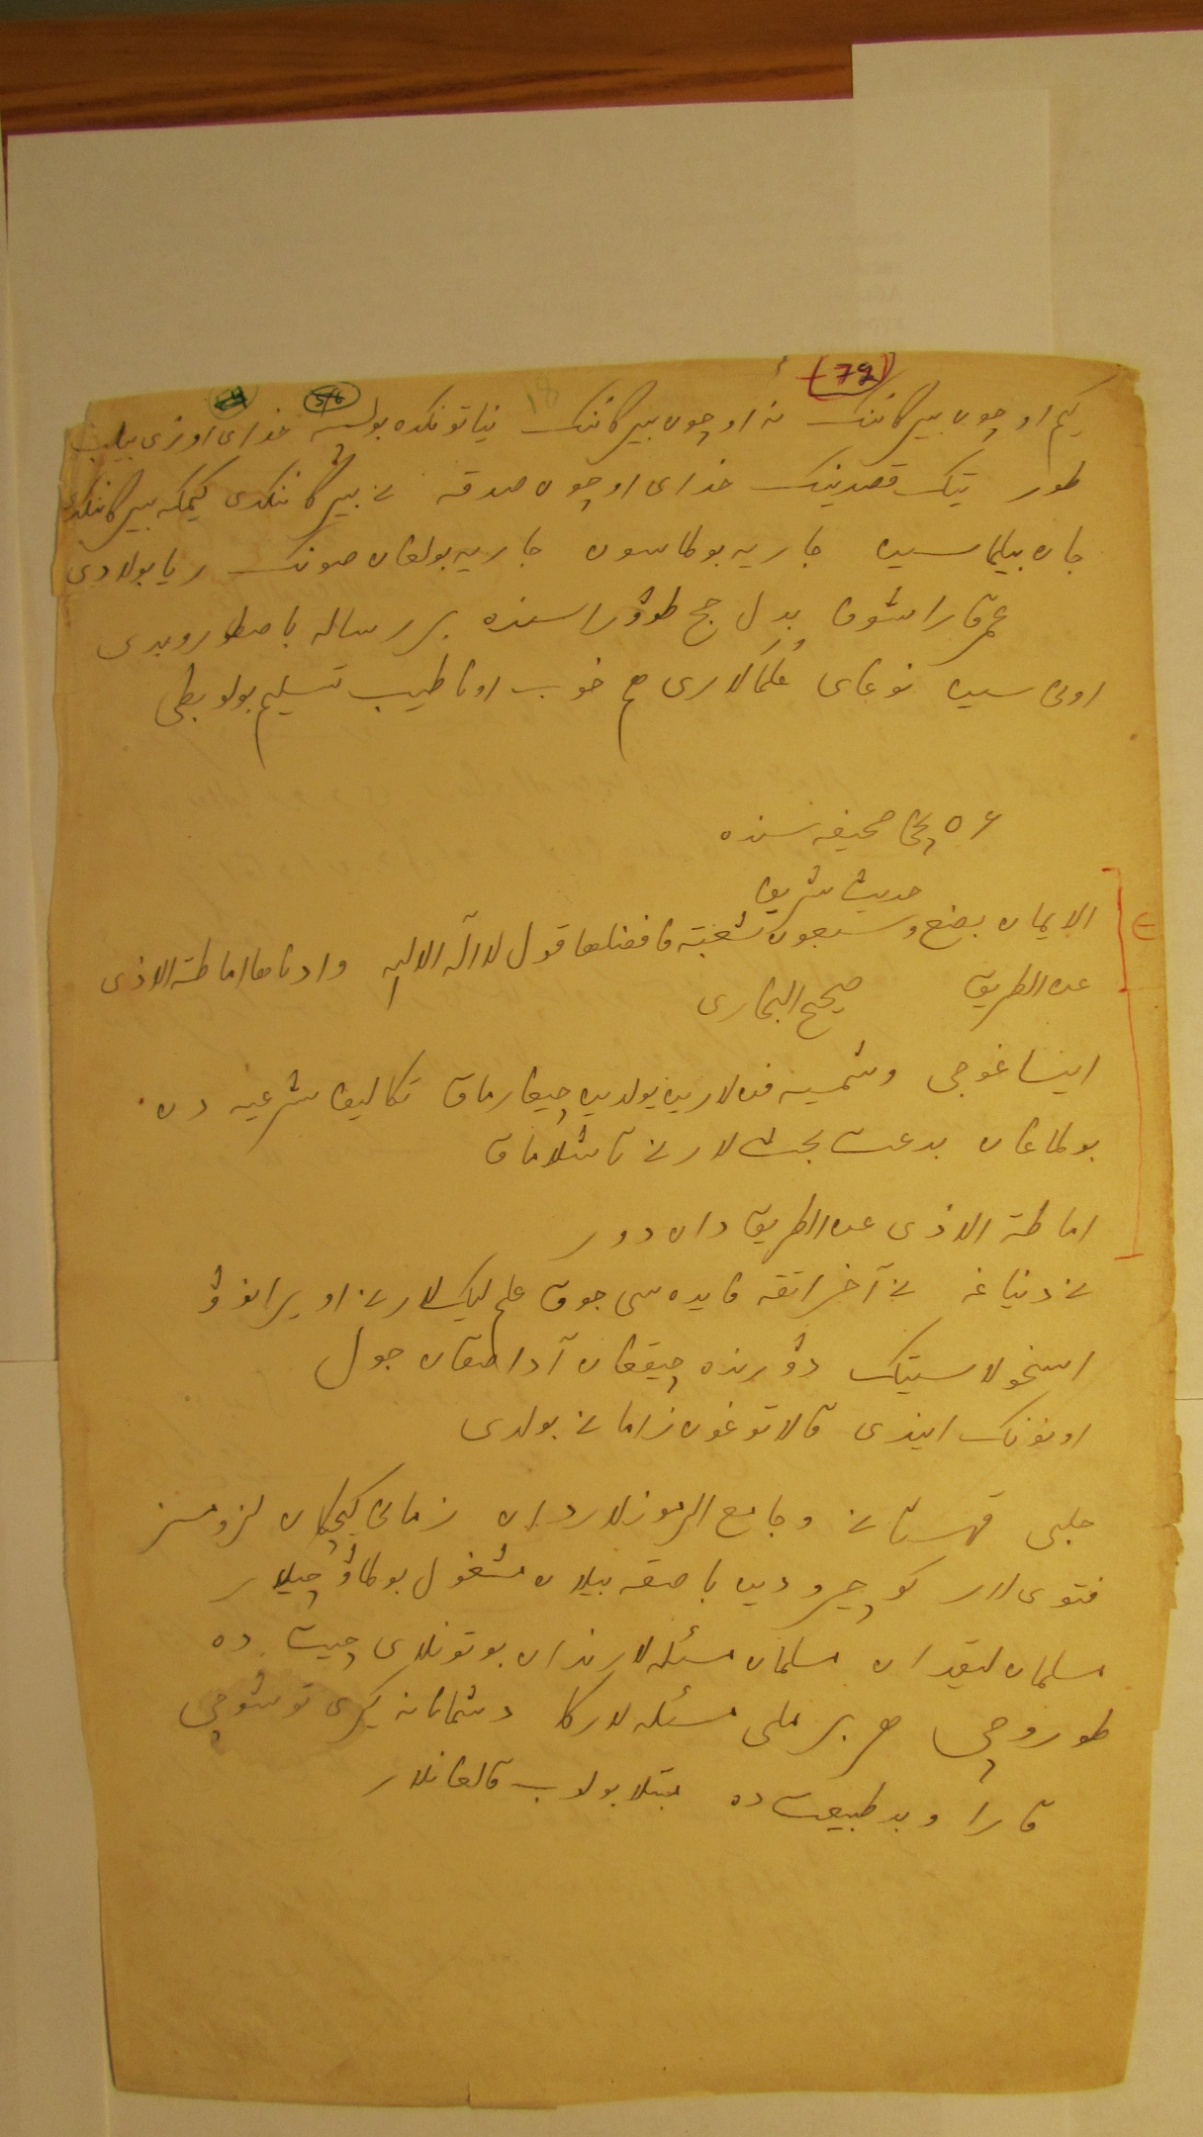 (79)
كیم اوچون بیرگاننك نه اوچون بیرگاننك نیاتونكده بولسه خدای اوزی بیلیب
طور تیك قصدینك خدای اوچون صدقه نی بیرگاننكدی كیمكه بیرگاننكدی
جان بیلماسین جاریه بولماسون جاریه بولغان صونك ریا بولادی
عمر قاراشوف بدل حج طوؤراسنده بر رساله باصطوروبدی
اونی سین نوغای علمالاری هم خوب اوناطیب تسلیم بولوبطی
٥٦ نچی صحیفه سنده
حدیث شریف
الایمان بضع وسبعون شعبة فافضلها قول لا آله الا الله وادناها اماطة الاذی
عن الطریق صحیح البخاری
ایساغوجی وشمسیه فن لارین یولدین چیقارماق تكالیف شرعیه دن
بولماغان بدعت بحث لارنی تاشلاماق
اماطة الاذی عن الطریق دان دور
نی دنیاغه نی آخراتقه فایده سی جوق علم لیك لارنی اویرانوؤ
اسخولاستیك دؤرنده چیققان آداصقان جول
اونونك ایندی قالاتوغون زمانی بولدی
جلبی قهستانی وجامع الرموزلاردان زمانی كیچكان لزومسز
فتوی لار كوچیرودین باصقه بیلان مشغول بولماؤچیلار
مسلمان لیقدان مسلمان مسئله لارندان بوتونلای چیت ده
طوروچی هر بر ملی مسئله لارگا دشمانانه كیری توشوچی
قارا وبد طبیعت ده مبتلا بولوب قالغانلار